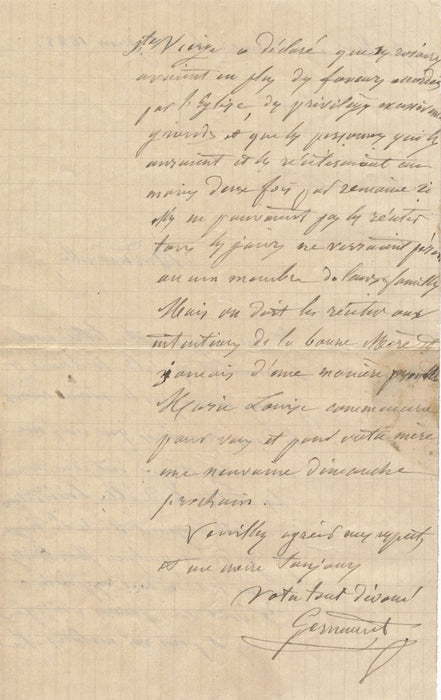 Ste Vierge a déclaré que les rosaires
avaient en plus des faveurs accordées
par l'Eglise des privilèges excessivement
grands et que les personnes qui les
auraient et les réciteraient au
moins deux fois par semaine si
elles ne pouvaient pas les réciter
tous les jours ne verraient périr
aucun membre de leurs familles
Mais on doit les réciter aux
intentions de la bonne Mère et
jamais d'une manière
Marie Louise commencera
pour vous et pour votre mère
une neuvaine dimanche
prochain.
Veuillez agréer mes respects,
et me croire toujours
Votre tout dévoué